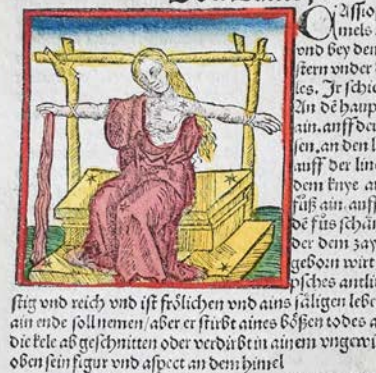 Assio
mels
vnd bey den
stern vnder d
les. Jr schie
An dē haup
ain. auff der
sen. an den l
auff der lin
dem knye a
fůß ain. auf
dē fůs schä
der dem zay
geborn wirt
psches antli
stig vnd reich vnd ist frölichen vnd ains säligen lebe
ain ende soll nemen/aber er stirbt aines bößen todes a
die kele ab geschnitten oder verdirbt in ainem vngewi
oben sein figur vnd aspect an dem himel